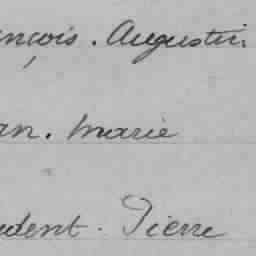 ançois. Augustin
an. Marie
udent. Pierre